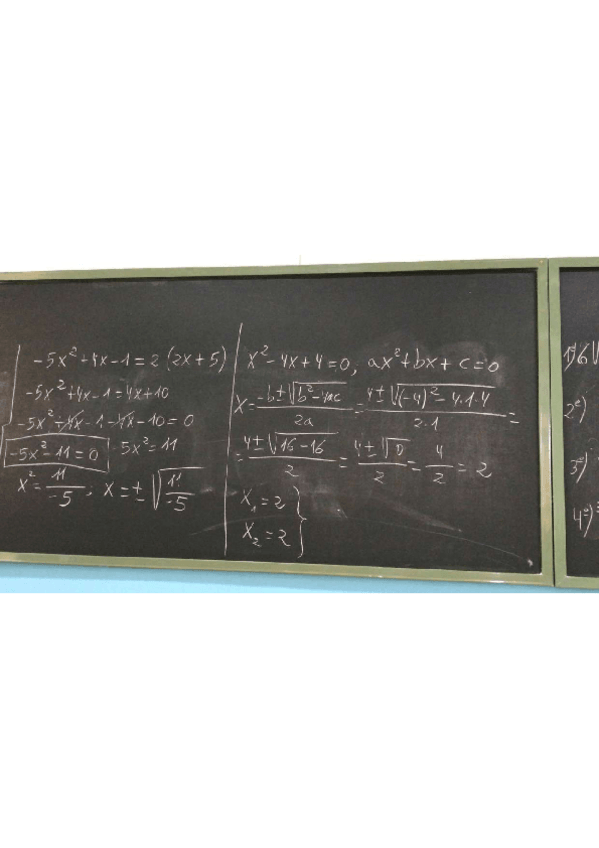 -5x²+4x-1=2(2x+5)
-5x²+4x-1=4x+10
-5x²+4x-1-4x-10=0
-5x²-11=0 -5x²=11
x²=11/-5; x=±√(11/-5)
x²-4x+4=0, ax²+bx+c=0
x=(-b±√(b²-4ac))/2a=(4±√((-4)²-4.1.4))/2.1=
=(4±√(16-16))/2=(4±√0)/2=4/2=2
x₁=2
x₂=2
2º)
3º)
4º)